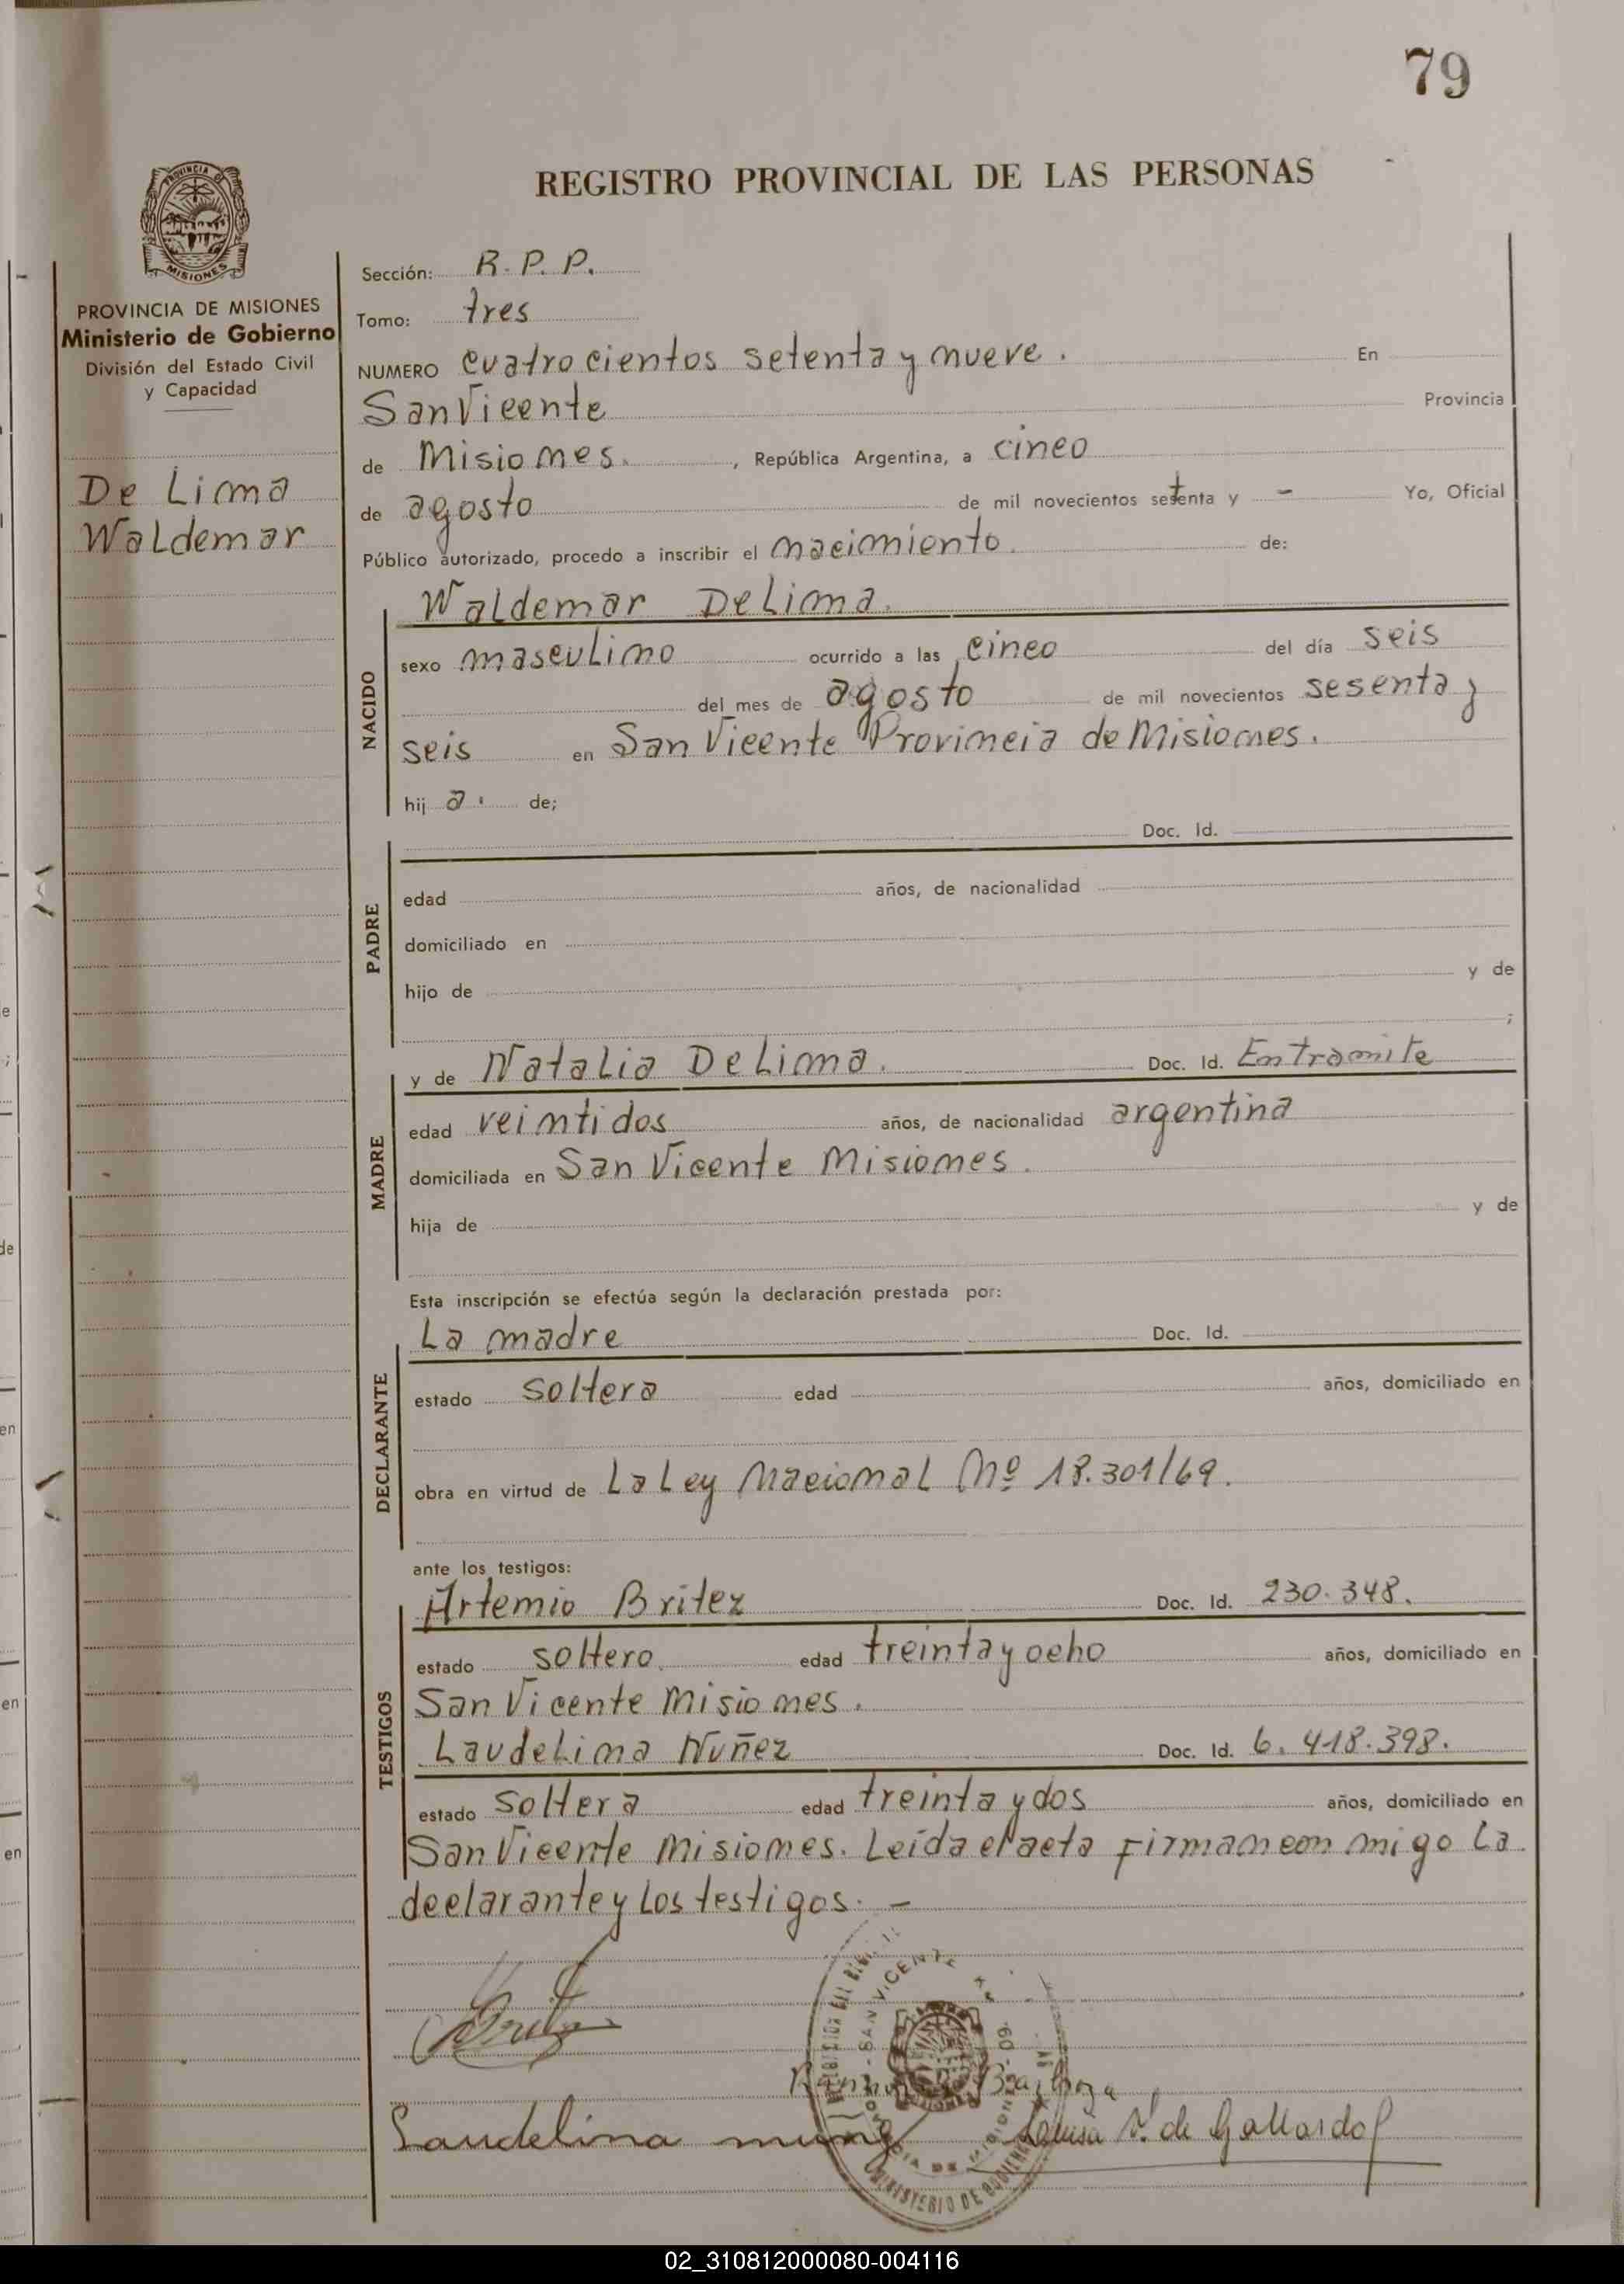 79
REGISTRO PROVINCIAL DE LAS PERSONAS
PROVINCIA DE
MISIONES
PROVINCIA DE MISIONES
Ministerio de Gobierno
División del Estado Civil
y Capacidad
De Lima
Waldemar
Sección: R. P. P.
Tomo: tres
NUMERO cuatrocientos setenta y nueve. En
San Vicente Provincia
de Misiones. , República Argentina, a cinco
de agosto de mil novecientos setenta y - Yo, Oficial
Público autorizado, procedo a inscribir el nacimiento. de:
Waldemar De Lima.
NACIDO
sexo masculino ocurrido a las cinco del día seis
del mes de agosto de mil novecientos sesenta y
seis en San Vicente Provincia de Misiones.
hij a. de;
Doc. Id.
PADRE
edad años, de nacionalidad
domiciliado en
hijo de y de
;
MADRE
y de Natalia De Lima. Doc. Id. En tramite
edad veintidos años, de nacionalidad argentina
domiciliada en San Vicente Misiones.
hija de y de
Esta inscripción se efectúa según la declaración prestada por:
DECLARANTE
La madre Doc. Id.
estado soltera edad años, domiciliado en
obra en virtud de La Ley Nacional Nº 18.301/69.
ante los testigos:
TESTIGOS
Artemio Britez Doc. Id. 230.348.
estado soltero. edad treinta y ocho años, domiciliado en
San Vicente Misiones.
Laudelina Nuñez Doc. Id. 6.418.398.
estado soltera edad treinta y dos años, domiciliado en
San Vicente Misiones. Leída el acta firman con migo la
declarante y los testigos. -
SAN VICENTE
Laudelina
Luisa V. de Gallardo
MINISTERIO DE GOBIERNO
02_310812000080-004116